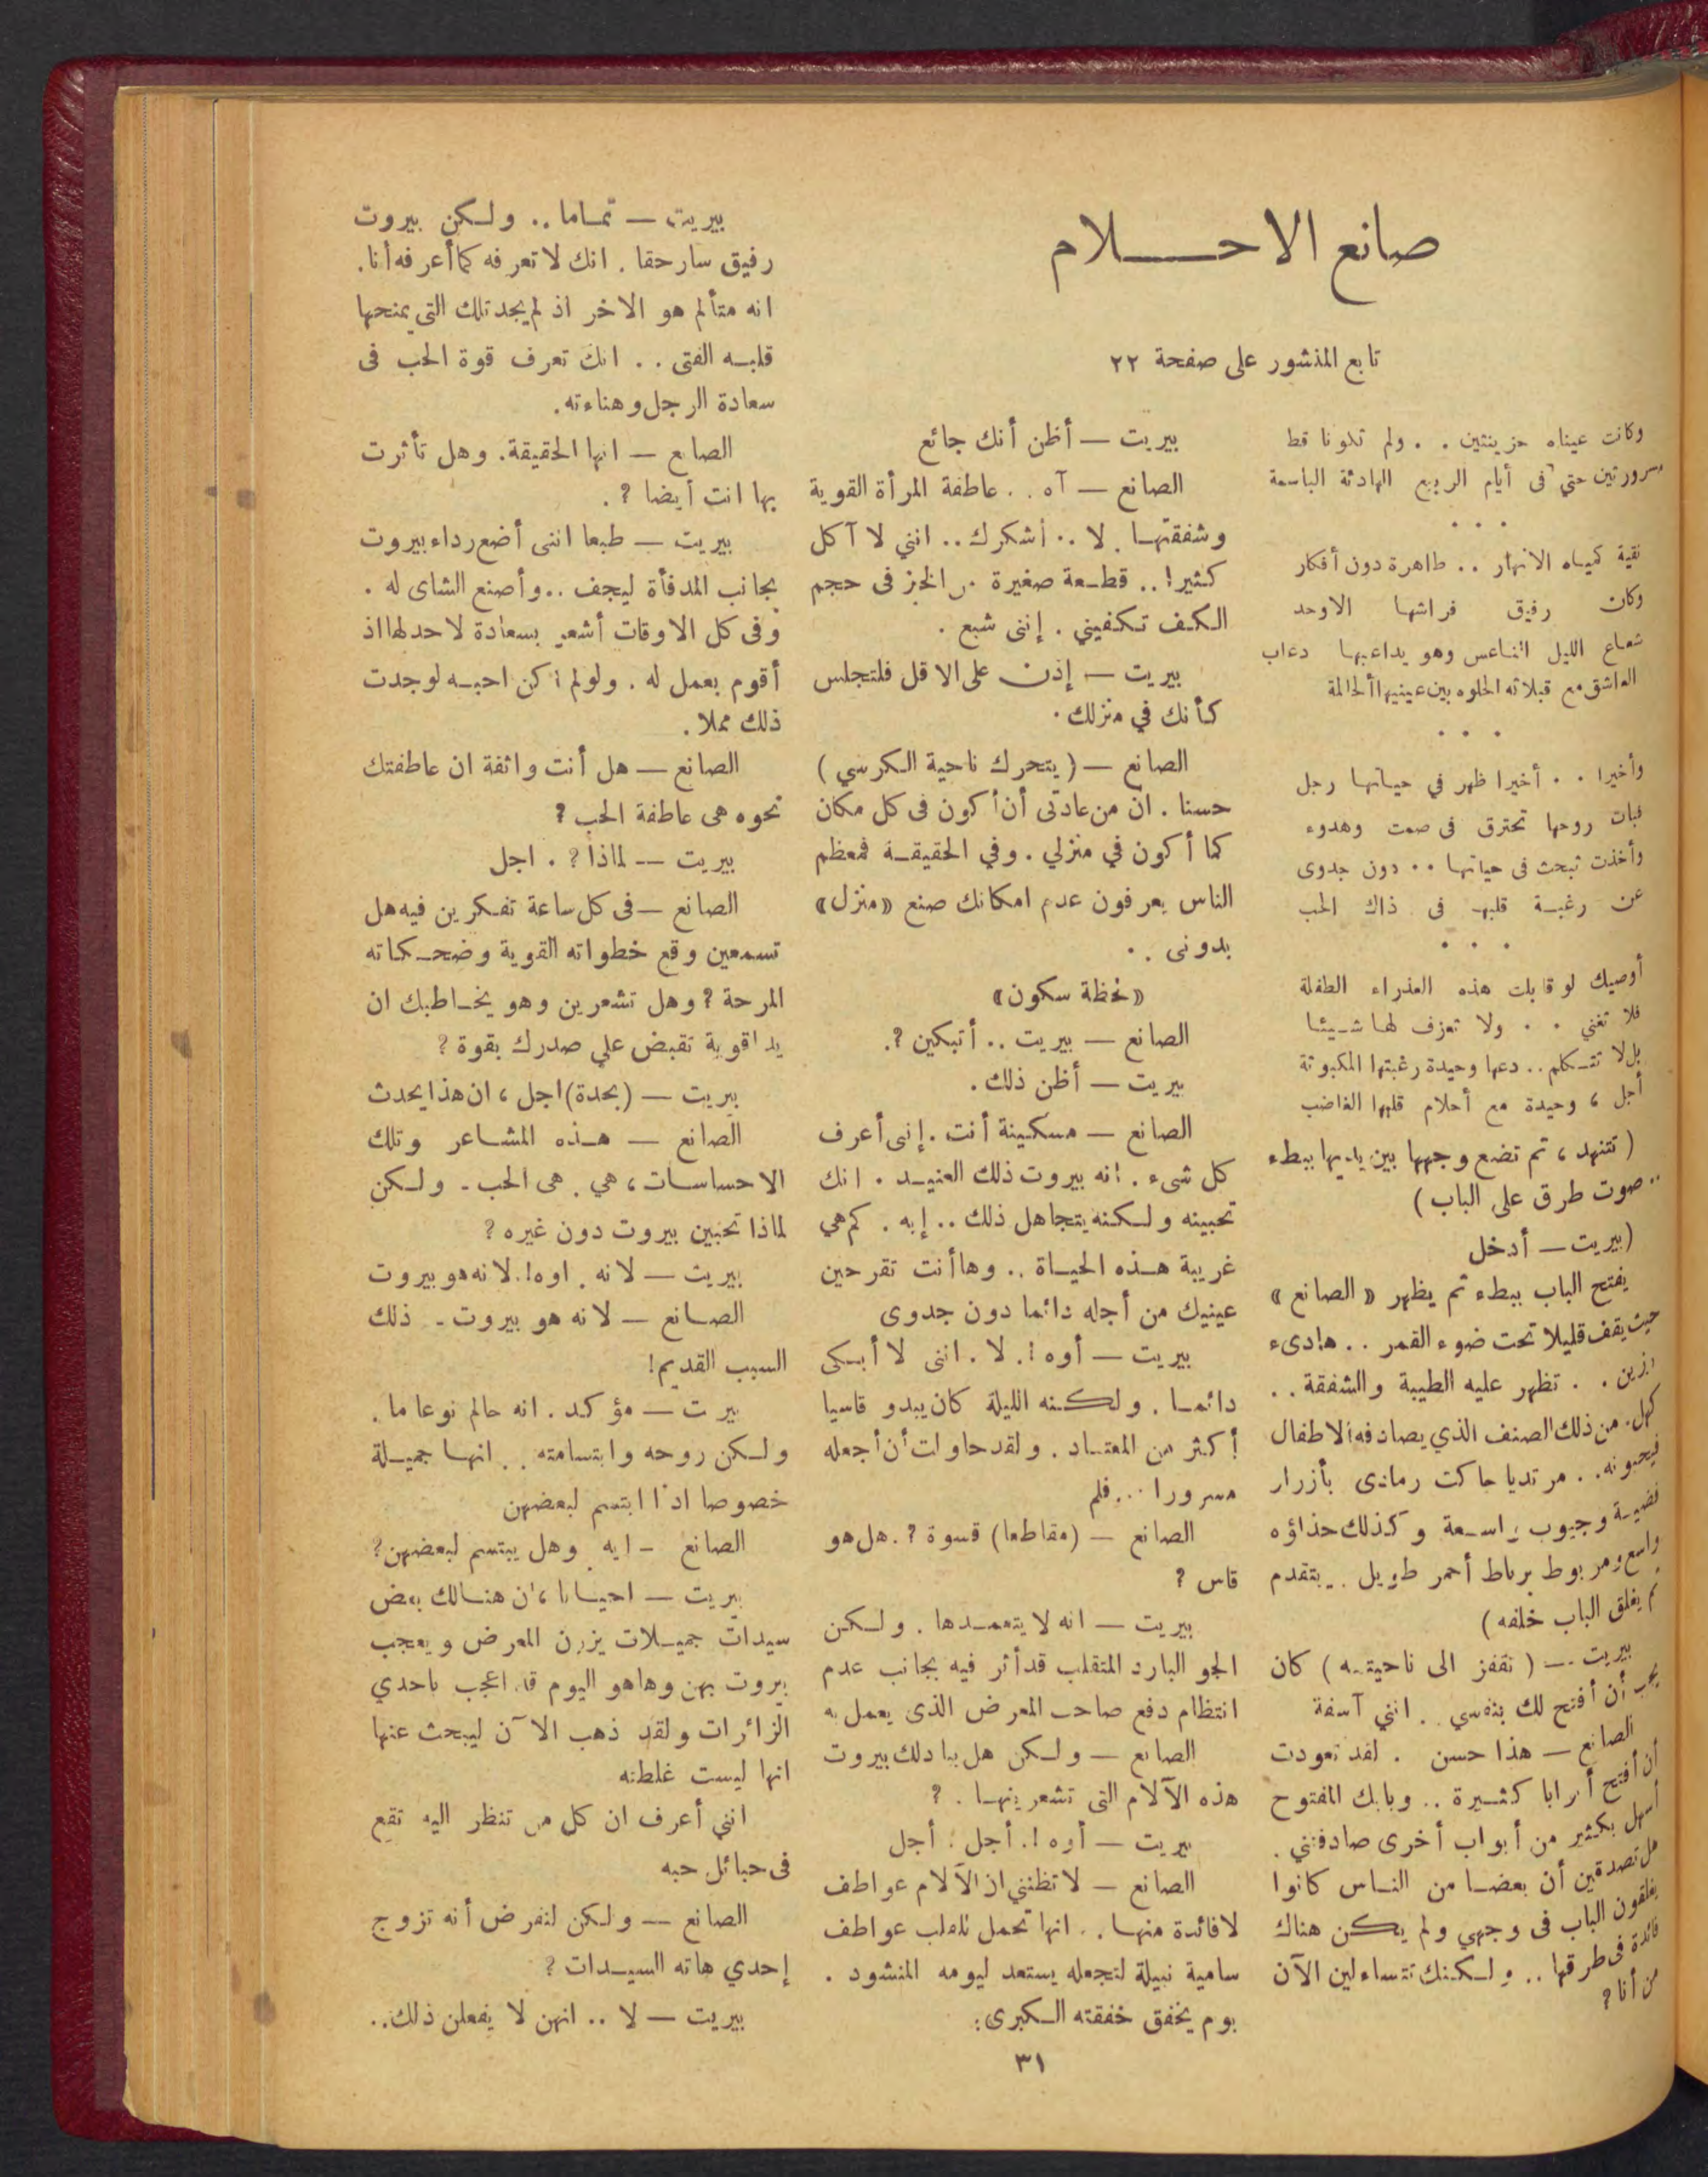 صانع الاحـــلام
تابع المنشور على صفحة ٢٢
وكانت عيناه حزينتين . . ولم تكونا قط
مسرورتين حتي فى أيام الربيع الهادئة الباسمة
. . .
نقية كمياه الانهار .. طاهرة دون أفكار
وكان رفيق فراشها الاوحد
شعاع الليل الناعس وهو يداعبها دعاب
العاشق مع قبلاته الحلوه بين عينيها ألحالمة
. . .
وأخيرا . . أخيرا ظهر في حياتها رجل
فبات روحها تحترق فى صمت وهدوء
وأخذت تبحث فى حياتها .. دون جدوى
عن رغبة قلبها فى ذاك الحب
. . .
أوصيك لو قابلت هذه العذراء الطفلة
فلا تغني . . ولا تعزف لها شيئا
بل لا تتكلم .. دعها وحيدة رغبتها المكبوتة
أجل ، وحيدة مع أحلام قلبها الغاضب
( تتنهد ، ثم تضع وجهها بين يديها ببطء
.. صوت طرق على الباب )
(بيريت — أدخل
يفتح الباب ببطء ثم يظهر « الصانع »
حيث يقف قليلا تحت ضوء القمر .. هادىء
رزين . . تظهر عليه الطيبة والشفقة . .
كهل . من ذلك الصنف الذي يصادفه الاطفال
فيحبونه . . مرتديا جاكت رمادى بأزرار
فضية وجيوب واسعة وكذلك حذاؤه
واسع ومربوط برباط أحمر طويل .. يتقدم
ثم يغلق الباب خلفه )
بيريت — ( تقفز الى ناحيته ) كان
يجب أن أفتح لك بنفسي . . انني آسفة
الصانع — هذا حسن . لقد تعودت
أن أفتح أبوابا كثيرة .. وبابك المفتوح
أسهل بكثير من أبواب أخرى صادفتني .
هل تصدقين أن بعضا من الناس كانوا
يغلقون الباب فى وجهي ولم يكن هناك
فائدة فى طرقها .. ولكنك تتساءلين الآن
من أنا ؟
بيريت — أظن أنك جائع
الصانع — آه . . عاطفة المرأة القوية
وشفقتها . لا .. أشكرك .. انني لا آكل
كثيرا .. قطعة صغيرة من الخبز فى حجم
الكف تكفيني . إننى شبع .
بيريت — إذن على الاقل فلتجلس
كأنك في منزلك .
الصانع — ( يتحرك ناحية الكرسي )
حسنا . ان من عادتى أن أكون فى كل مكان
كما أكون في منزلي . وفي الحقيقة فمعظم
الناس يعرفون عدم امكانك صنع « منزل »
بدونى . .
« لحظة سكون »
الصانع — بيريت .. أتبكين ؟.
بيريت — أظن ذلك .
الصانع — مسكينة أنت . إنى أعرف
كل شىء . انه بيروت ذلك العنيد . انك
تحبينه ولكنه يتجاهل ذلك .. إيه . كم هي
غريبة هذه الحياة .. وها أنت تقرحين
عينيك من أجله دائما دون جدوى
بيريت — أوه !. لا . اننى لا أبكى
دائما . ولكنه الليلة كان يبدو قاسيا
أكثر من المعتاد . ولقد حاولت أن أجعله
مسرورا ... فلم
الصانع — (مقاطعا) قسوة ؟. هل هو
قاس ؟
بيريت — انه لا يتعمدها . ولكن
الجو البارد المتقلب قد أثر فيه بجانب عدم
انتظام دفع صاحب المعرض الذى يعمل به
الصانع — ولكن هل يبادلك بيروت
هذه الآلام التى تشعرينها . ؟
بيريت — أوه !. أجل . أجل
الصانع — لا تظنني ان الآلام عواطف
لا فائدة منها .. انها تحمل للقلب عواطف
سامية نبيلة لتجعله يستعد ليومه المنشود .
يوم يخفق خفقته الكبرى :
بيريت — تماما .. ولكن بيروت
رفيق سار حقا . انك لا تعرفه كما أعرفه أنا .
انه متألم هو الاخر اذ لم يجد تلك التى يمنحها
قلبه الفتى . . انك تعرف قوة الحب فى
سعادة الرجل وهناءته .
الصانع — انها الحقيقة . وهل تأثرت
بها انت أيضا ؟ .
بيريت — طبعا اننى أضع رداء بيروت
بجانب المدفأة ليجف .. وأصنع الشاى له .
وفى كل الاوقات أشعر بسعادة لا حد لها اذ
أقوم بعمل له . ولو لم اكن احبه لوجدت
ذلك مملا .
الصانع — هل أنت واثقة ان عاطفتك
نحوه هى عاطفة الحب ؟
بيريت — لماذا ؟ . اجل
الصانع — فى كل ساعة تفكرين فيه هل
تسمعين وقع خطواته القوية وضحكاته
المرحة ؟ وهل تشعرين وهو يخاطبك ان
يدا قوية تقبض علي صدرك بقوة ؟
بيريت — (بحدة) اجل ، ان هذا يحدث
الصانع — هذه المشاعر وتلك
الاحساسات ، هي . هى الحب - ولكن
لماذا تحبين بيروت دون غيره ؟
بيريت — لانه . اوه !. لانه هو بيروت
الصانع — لانه هو بيروت - ذلك
السبب القديم !
بيرت — مؤكد . انه حالم نوعا ما .
ولكن روحه وابتسامته . . انها جميلة
خصوصا اذا ابتسم لبعضهن
الصانع - ايه . وهل يبتسم لبعضهن ؟
بيريت — احيانا ، ان هنالك بعض
سيدات جميلات يزرن المعرض ويعجب
بيروت بهن وها هو اليوم قد اعجب باحدي
الزائرات ولقد ذهب الآن ليبحث عنها
انها ليست غلطته
انني أعرف ان كل من تنظر اليه تقع
فى حبائل حبه
الصانع — ولكن لنفرض أنه تزوج
إحدي هاته السيدات ؟
بيريت — لا .. انهن لا يفعلن ذلك ..
٣١